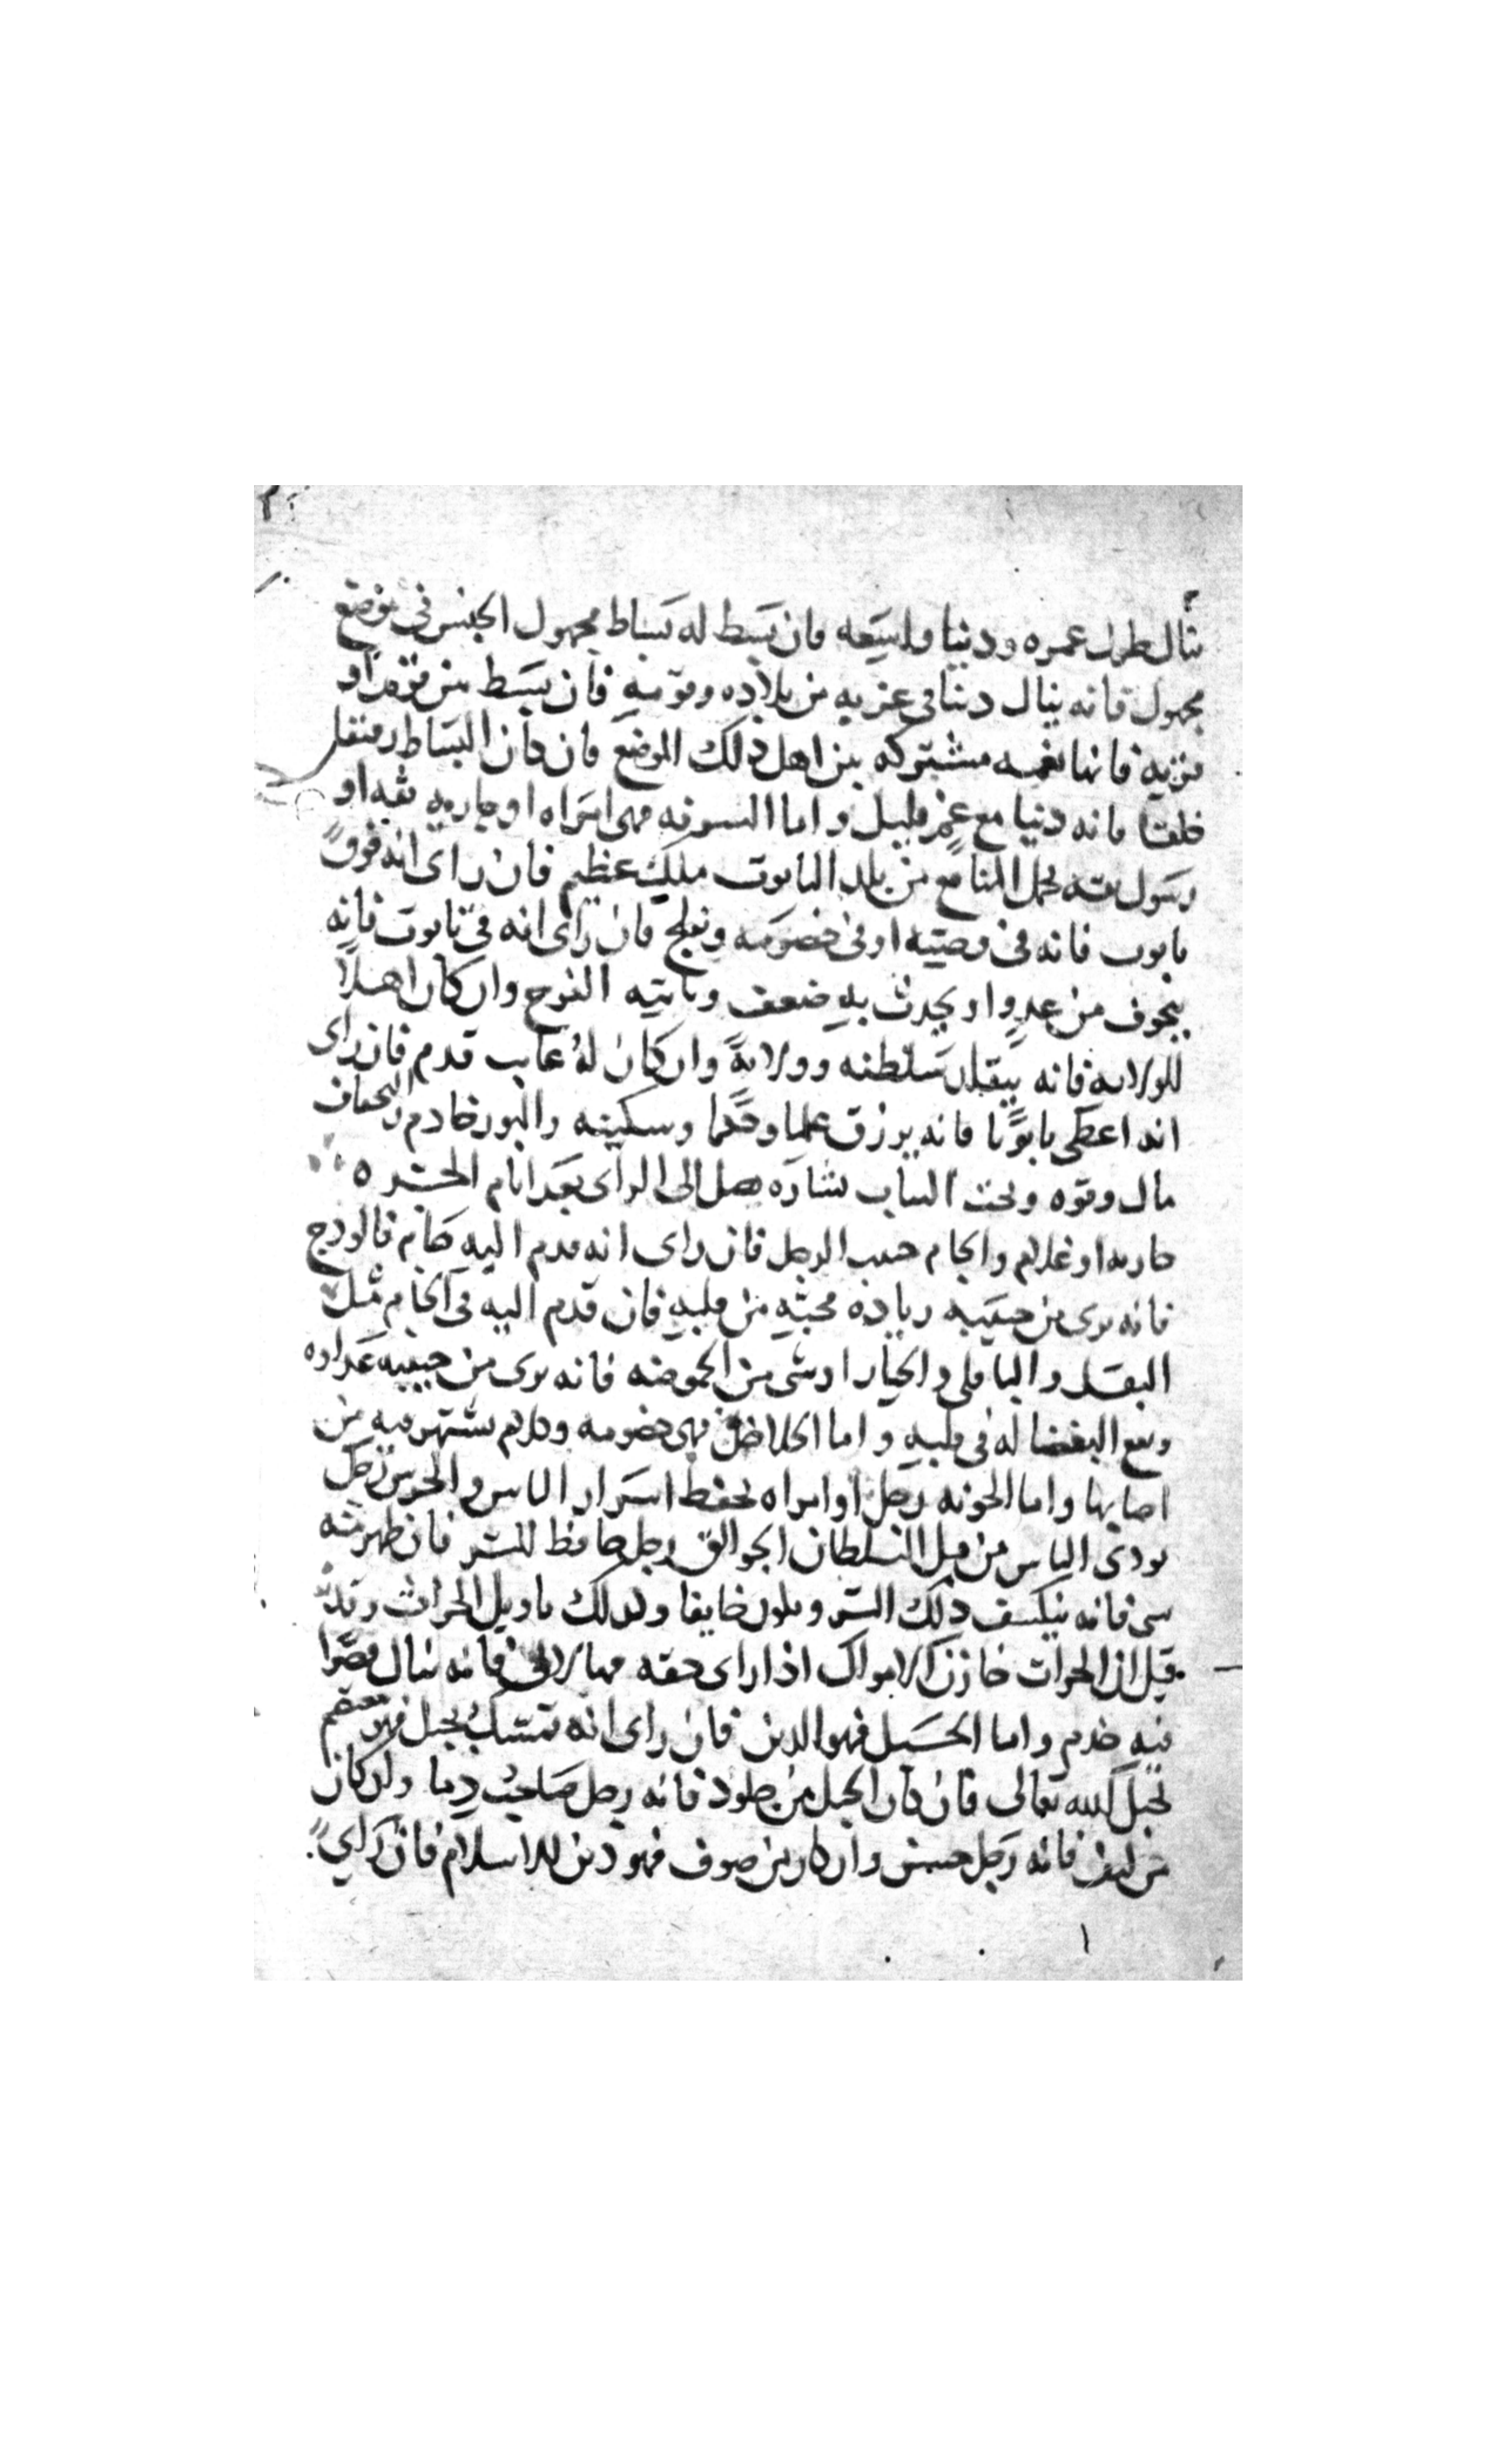 ينال طول عمره ودنيا واسعه فان بسط له بساط مجهول الجنس في موضع
مجهول فانه ينال دنيا في غربه من بلاده وقومه فان بسط بين قوم او
قريه فانها نعمه مشتركه بين اهل ذلك الموضع فان كان البساط رقيقا
خلقا فانه دنيا مع عمر قليل واما السفره فهي امراه او جاريه ثقه او
رسول ثقه يحمل المنافع من بلد التابوت ملك عظيم فان راى انه فوق
تابوت فانه في وصيه او في خصومه ويفلح فان راى انه في تابوت فانه
يخوف من عدو او يحدث به ضعف وياتيه الفرج وان كان اهلا
للولايه فانه يتقلد سلطنه وولايةً وان كان له غايب قدم فان راى
انه اعطى تابوتا فانه يرزق علما وحكما وسكينه والتور خادم
مال وقوه وتخت الثياب بشاره تصل الى الراى بعد ايام
جاريه او غلام والجام حبيب الرجل فان راى انه قدم اليه جام فالوذج
فانه يرى من حبيبه زياده محبته من قلبه فان قدم اليه في الجام مثل
البقل والباقلى والخيار او شي من الحموضه فانه يرى من حبيبه عداوه
وتقع البغضا له في قلبه واما فهي خصومه وكلام يشتهر فيه من
اصابها واما الجونه رجل او امراه يحفظ اسرار الناس والجرس رجل
يوذي الناس من قبل السلطان الجوالق رجل حافظ للسر فان ظهر منه
شي فانه ينكشف ذلك السر ويكون خاينا وكذلك تاويل الجراب وقد
قيل ان الجراب خازن الاموال اذا راى حقه فيها لالي فانه ينال قصرا
فيه خدم واما الحبل فهو الدين فان راى انه تمسك بحبل فهو معتصم
بحبل الله تعالى فان كان الحبل من جلود فانه رجل صاحب دما وان كان
من ليف فانه رجل خشن وان كان من صوف فهو دين للاسلام فان راى